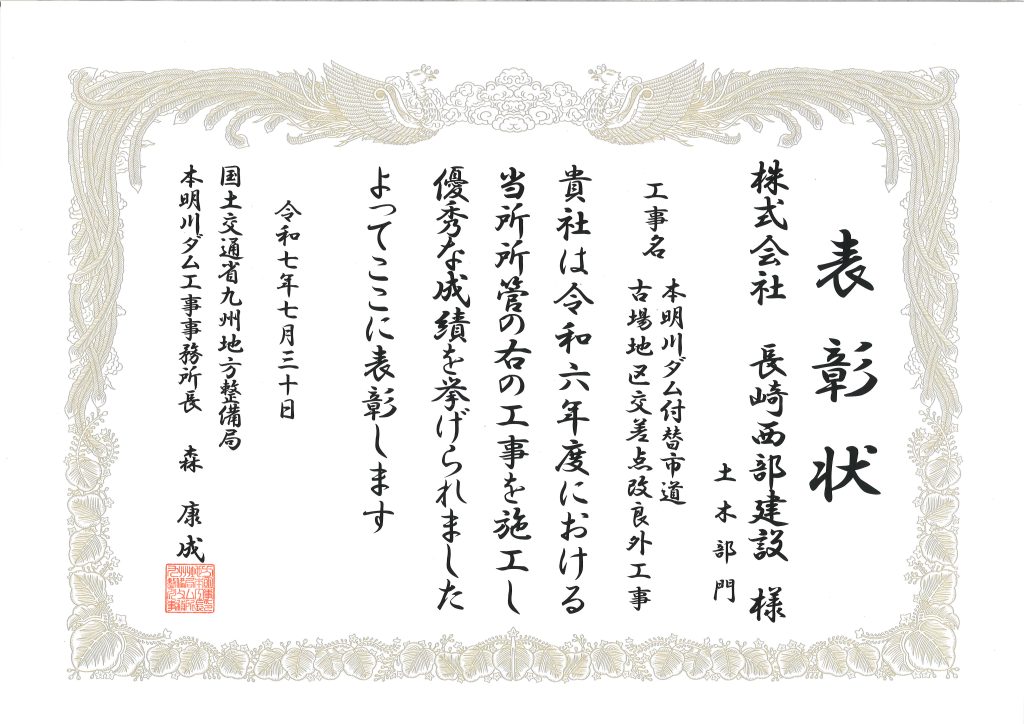 表彰状
株式会社 長崎西部建設 様
土木部門
工事名 本明川ダム付替市道
古場地区交差点改良外工事
貴社は令和六年度における
当所所管の右の工事を施工し
優秀な成績を挙げられました
よってここに表彰します
令和七年七月三十日
国土交通省九州地方整備局
本明川ダム工事事務所長 森 康成